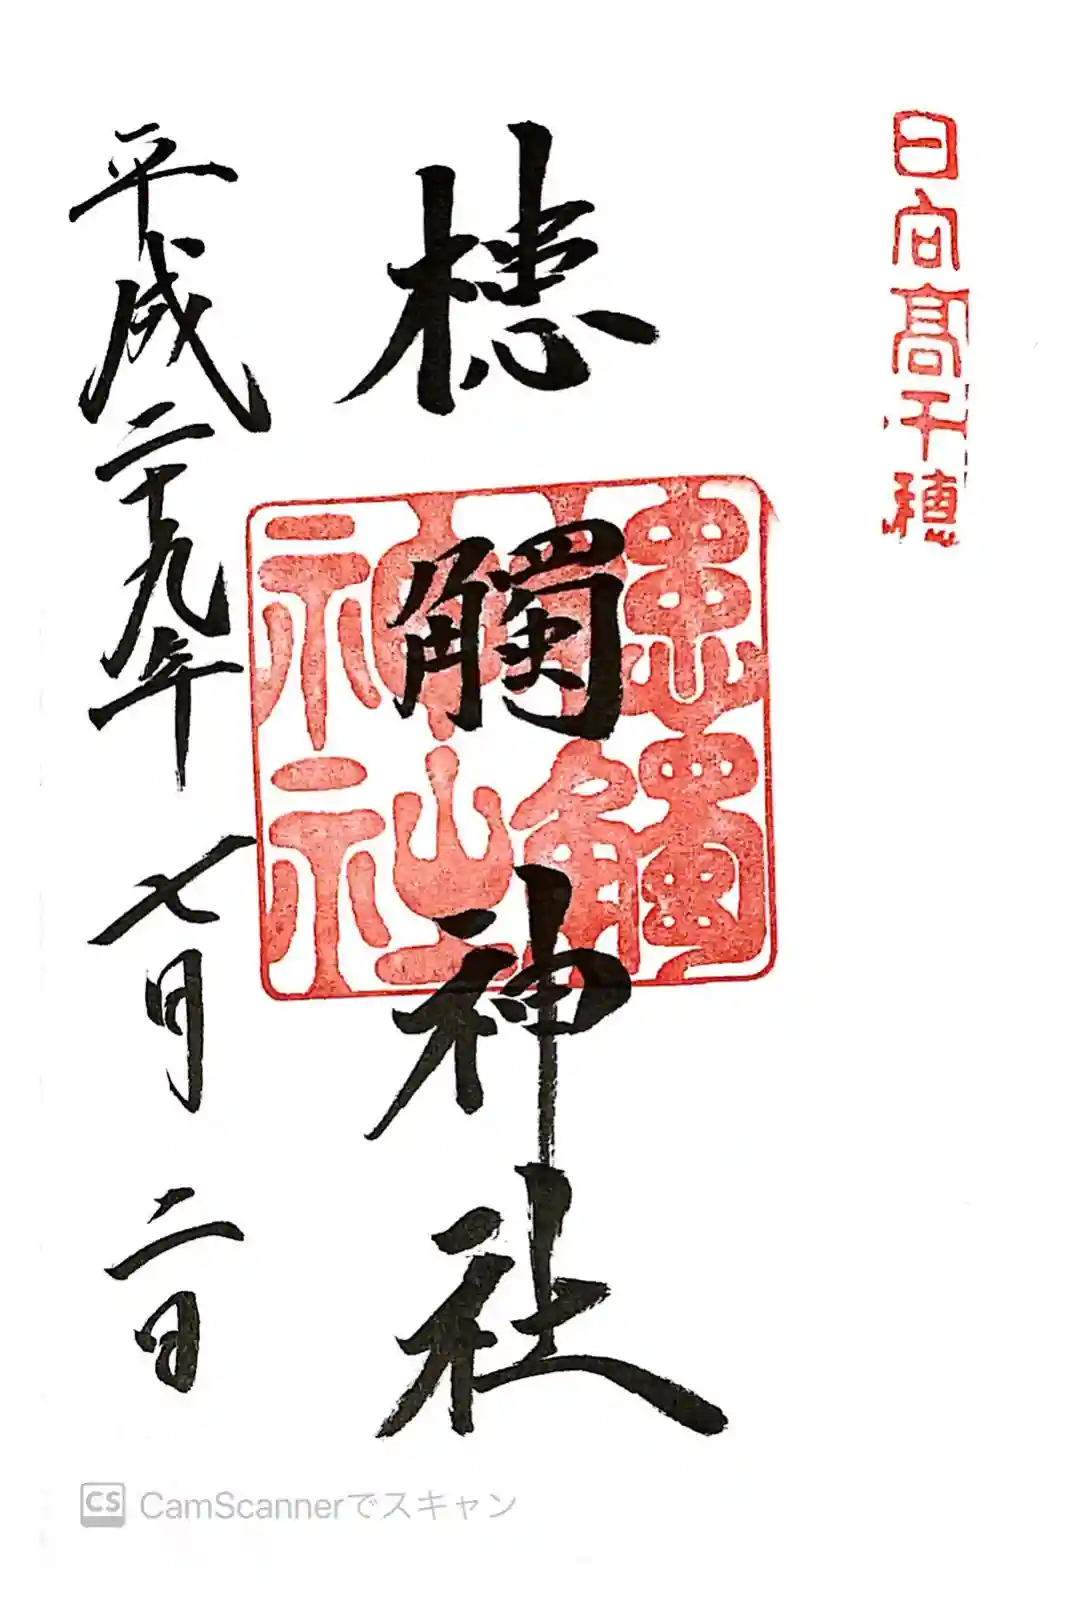 日向高千穂
槵觸神社
槵觸神社
平成二十九年七月二日
CS CamScannerでスキャン